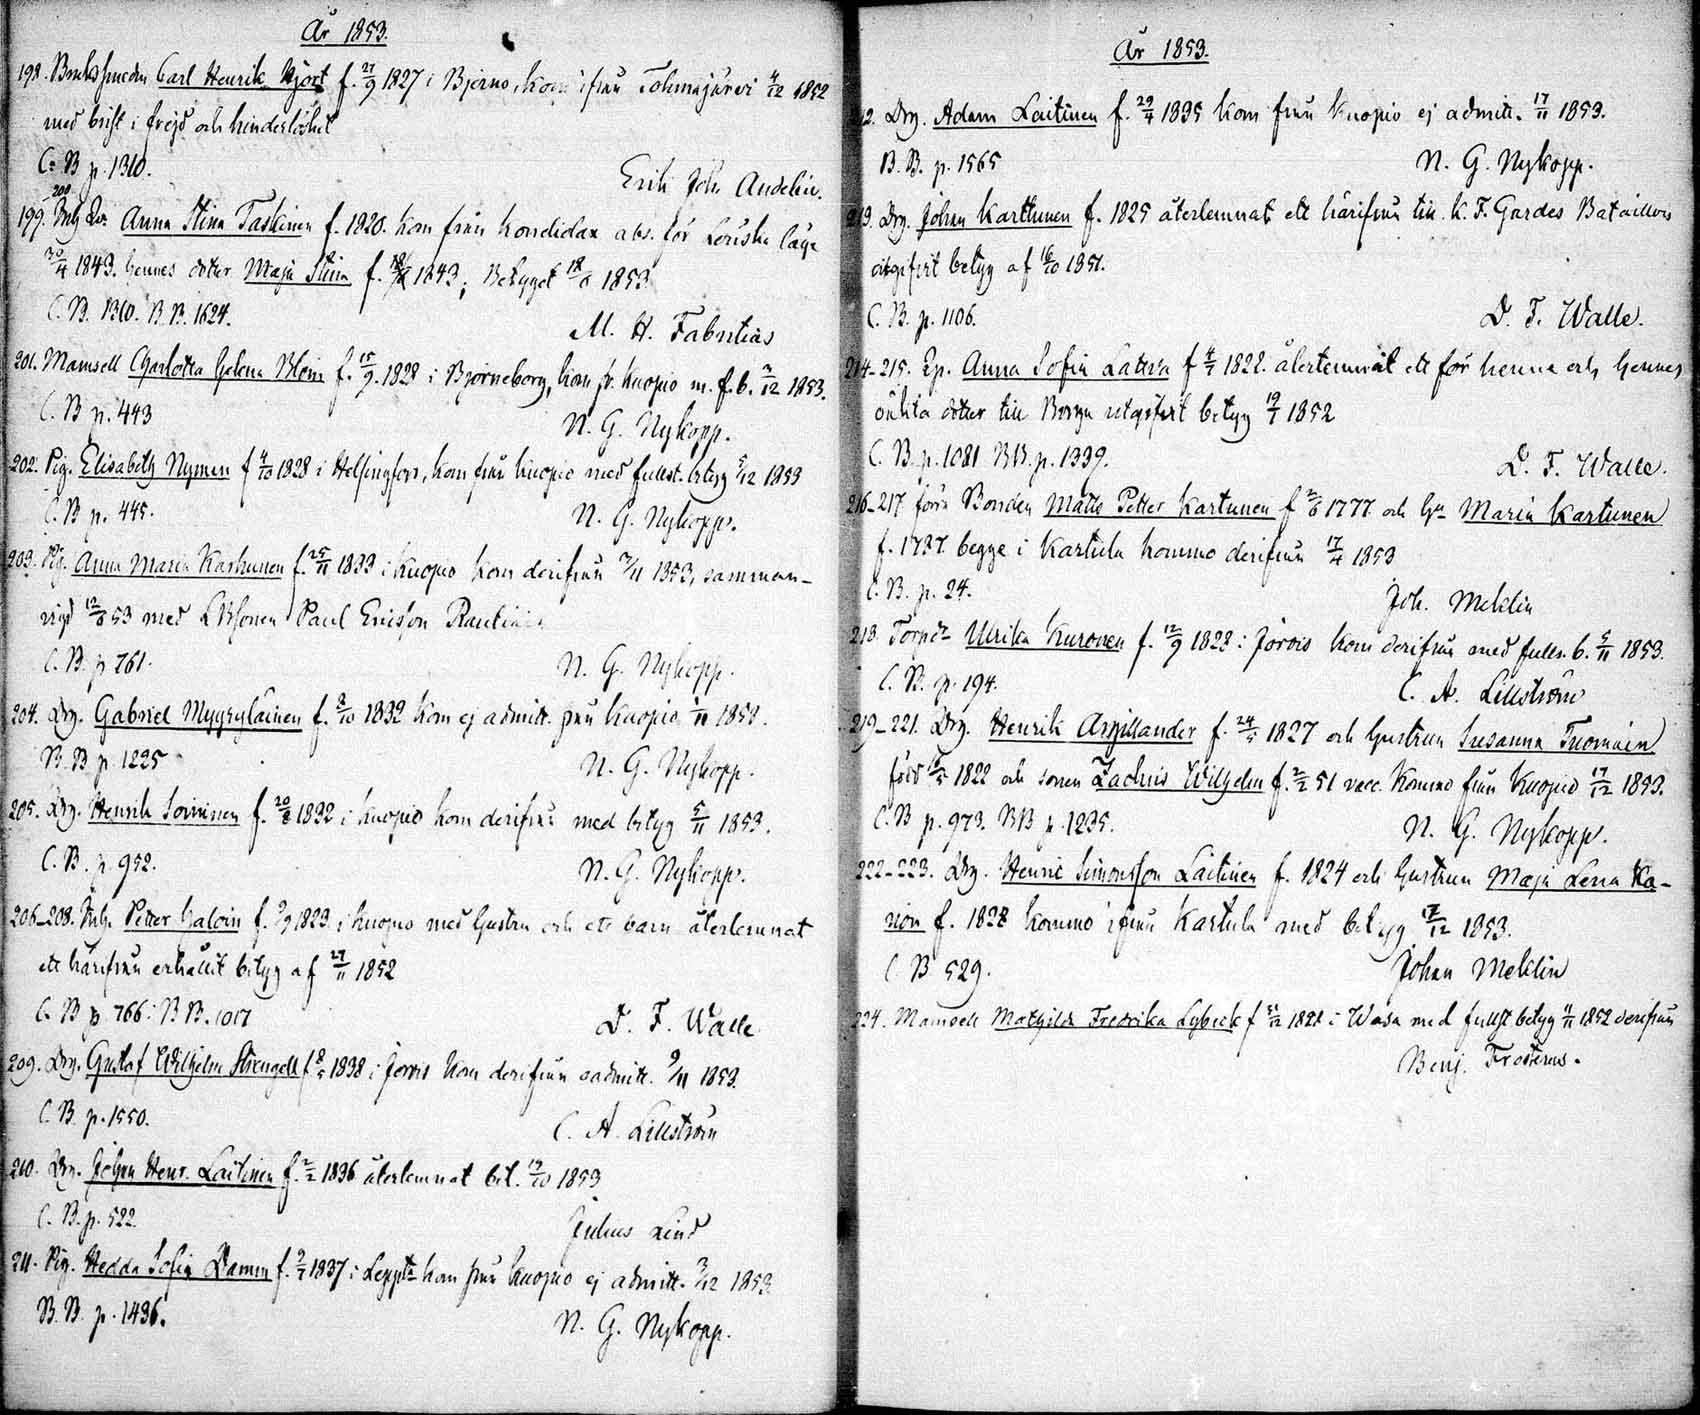 År 1853.
198. Bruksmeden Carl Henrik Hjort f. 27/9 1827 i Bjerno, kom ifrån Tohmajärvi 4/12 1852
med brist i frejd och hinderlöshet
C. B p. 1310.
Erik Joh. Andelin.
200
199. Anna Stina Taskinen f. 1820. kom från abs. för
30/4 1843. hennes dotter Maja Stina f. 1843; Betyget 18/8 1853
C. B. 1310. B. B. 1624.
M. H. Fabritius
201. Mamsell Charlotta Helena Blom f. 15/9 1828 i Björneborg, kom fr. Kuopio m. f. b. 3/12 1853.
C. B p. 443
N. G. Nykopp.
202. Pig. Elisabeth Nyman f 4/10 1828 i Helsingfors, kom från Kuopio med fullst. betyg 5/12 1853
C. B p. 445.
N. G. Nykopp.
203. Pig. Anna Maria Karhunen f. 25/11 1833 i Kuopio kom derifrån 7/11 1853, samman-
vigd 12/8 53 med Paul Ericsson Rautiain
C. B. p 761.
N. G. Nykopp.
204. Drg. Gabriel Myyryläinen f. 8/10 1832 kom ej admitt. från Kuopio 1/11 1853.
B. B p. 1225
N. G. Nykopp.
205. Drg. Henrik Soininen f. 20/8 1832 i Kuopio kom derifrån med betyg 5/11 1853.
C. B. p. 952.
N. G. Nykopp.
206-208. Inh. Petter Haloin f. 9/9 1823 i Kuopio med hustru och ett barn återlemnat
ett härifrån erhållit betyg af 27/11 1852
C. B p. 766. B B. 1017
D. F. Walle
209. Drg. Gustaf Wilhelm Strengell f 8/5 1838 i Jorois kom derifrån oadmitt. 9/11 1853.
C. B p. 1550.
C. A. Lillström
210. Drg. Johan Henr. Laitinen f. 2/2 1836 återlemnat bet. 12/10 1853
C. B. p. 522.
Julius Lind
211. Pig. Hedda Sofia Damm f. 9/7 1837 i kom från Kuopio ej admitt. 3/12 1853
B. B. p. 1436.
N. G. Nykopp.
År 1853.
212. Drg. Adam Laitinen f. 29/4 1835 kom från Kuopio ej admitt. 17/11 1853.
B. B. p. 1565
N. G. Nykopp.
213. Drg. Johan Karttunen f. 1825 återlemnat ett härifrån till K. F. Gardes Bataillon
utgifvit betyg af 16/10 1851.
C. B. p. 1106.
D. F. Walle.
214-215. Ep. Anna Sofia f 4/7 1822. återlemnat ett för henne och hennes
oäkta dotter till Borgå utgifvit betyg 19/7 1852
C. B. p. 1081 BB. p. 1339.
D. F. Walle.
216-217. förra Bonden Matts Petter Kartunen f 2/6 1777 och hu Maria Kartunen
f. 1787. begge i Karttula kommo derifrån 17/4 1853
C. B. p. 24.
Joh. Meklin
218. Ulrika Kuronen f. 12/9 1823 i Jorois kom derifrån med fulls. b. 5/11 1853.
C. B. p. 194.
C. A. Lillström
219-221. Drg. Henrik Aspillander f. 24/5 1827 och hustrun Susanna Tuomain
född 1822 och sonen Zachris Wilhelm f. 2/2 51 vacc. kommo från Kuopio 17/12 1853.
C. B p. 973. BB p. 1235.
N. G. Nykopp.
222-223. Drg. Henric Simonsson Laitinen f. 1824 och hustrun Maja Lena Ka-
f. 1828 kommo ifrån Karttula med betyg 17/12 1853.
C. B 529.
Johan Meklin
224. Mamsell Mathilda Fredrika Lybeck f 31/12 1821 i Wasa med fullst. betyg 4/11 1852 derifrån
Benj. Frosterus.